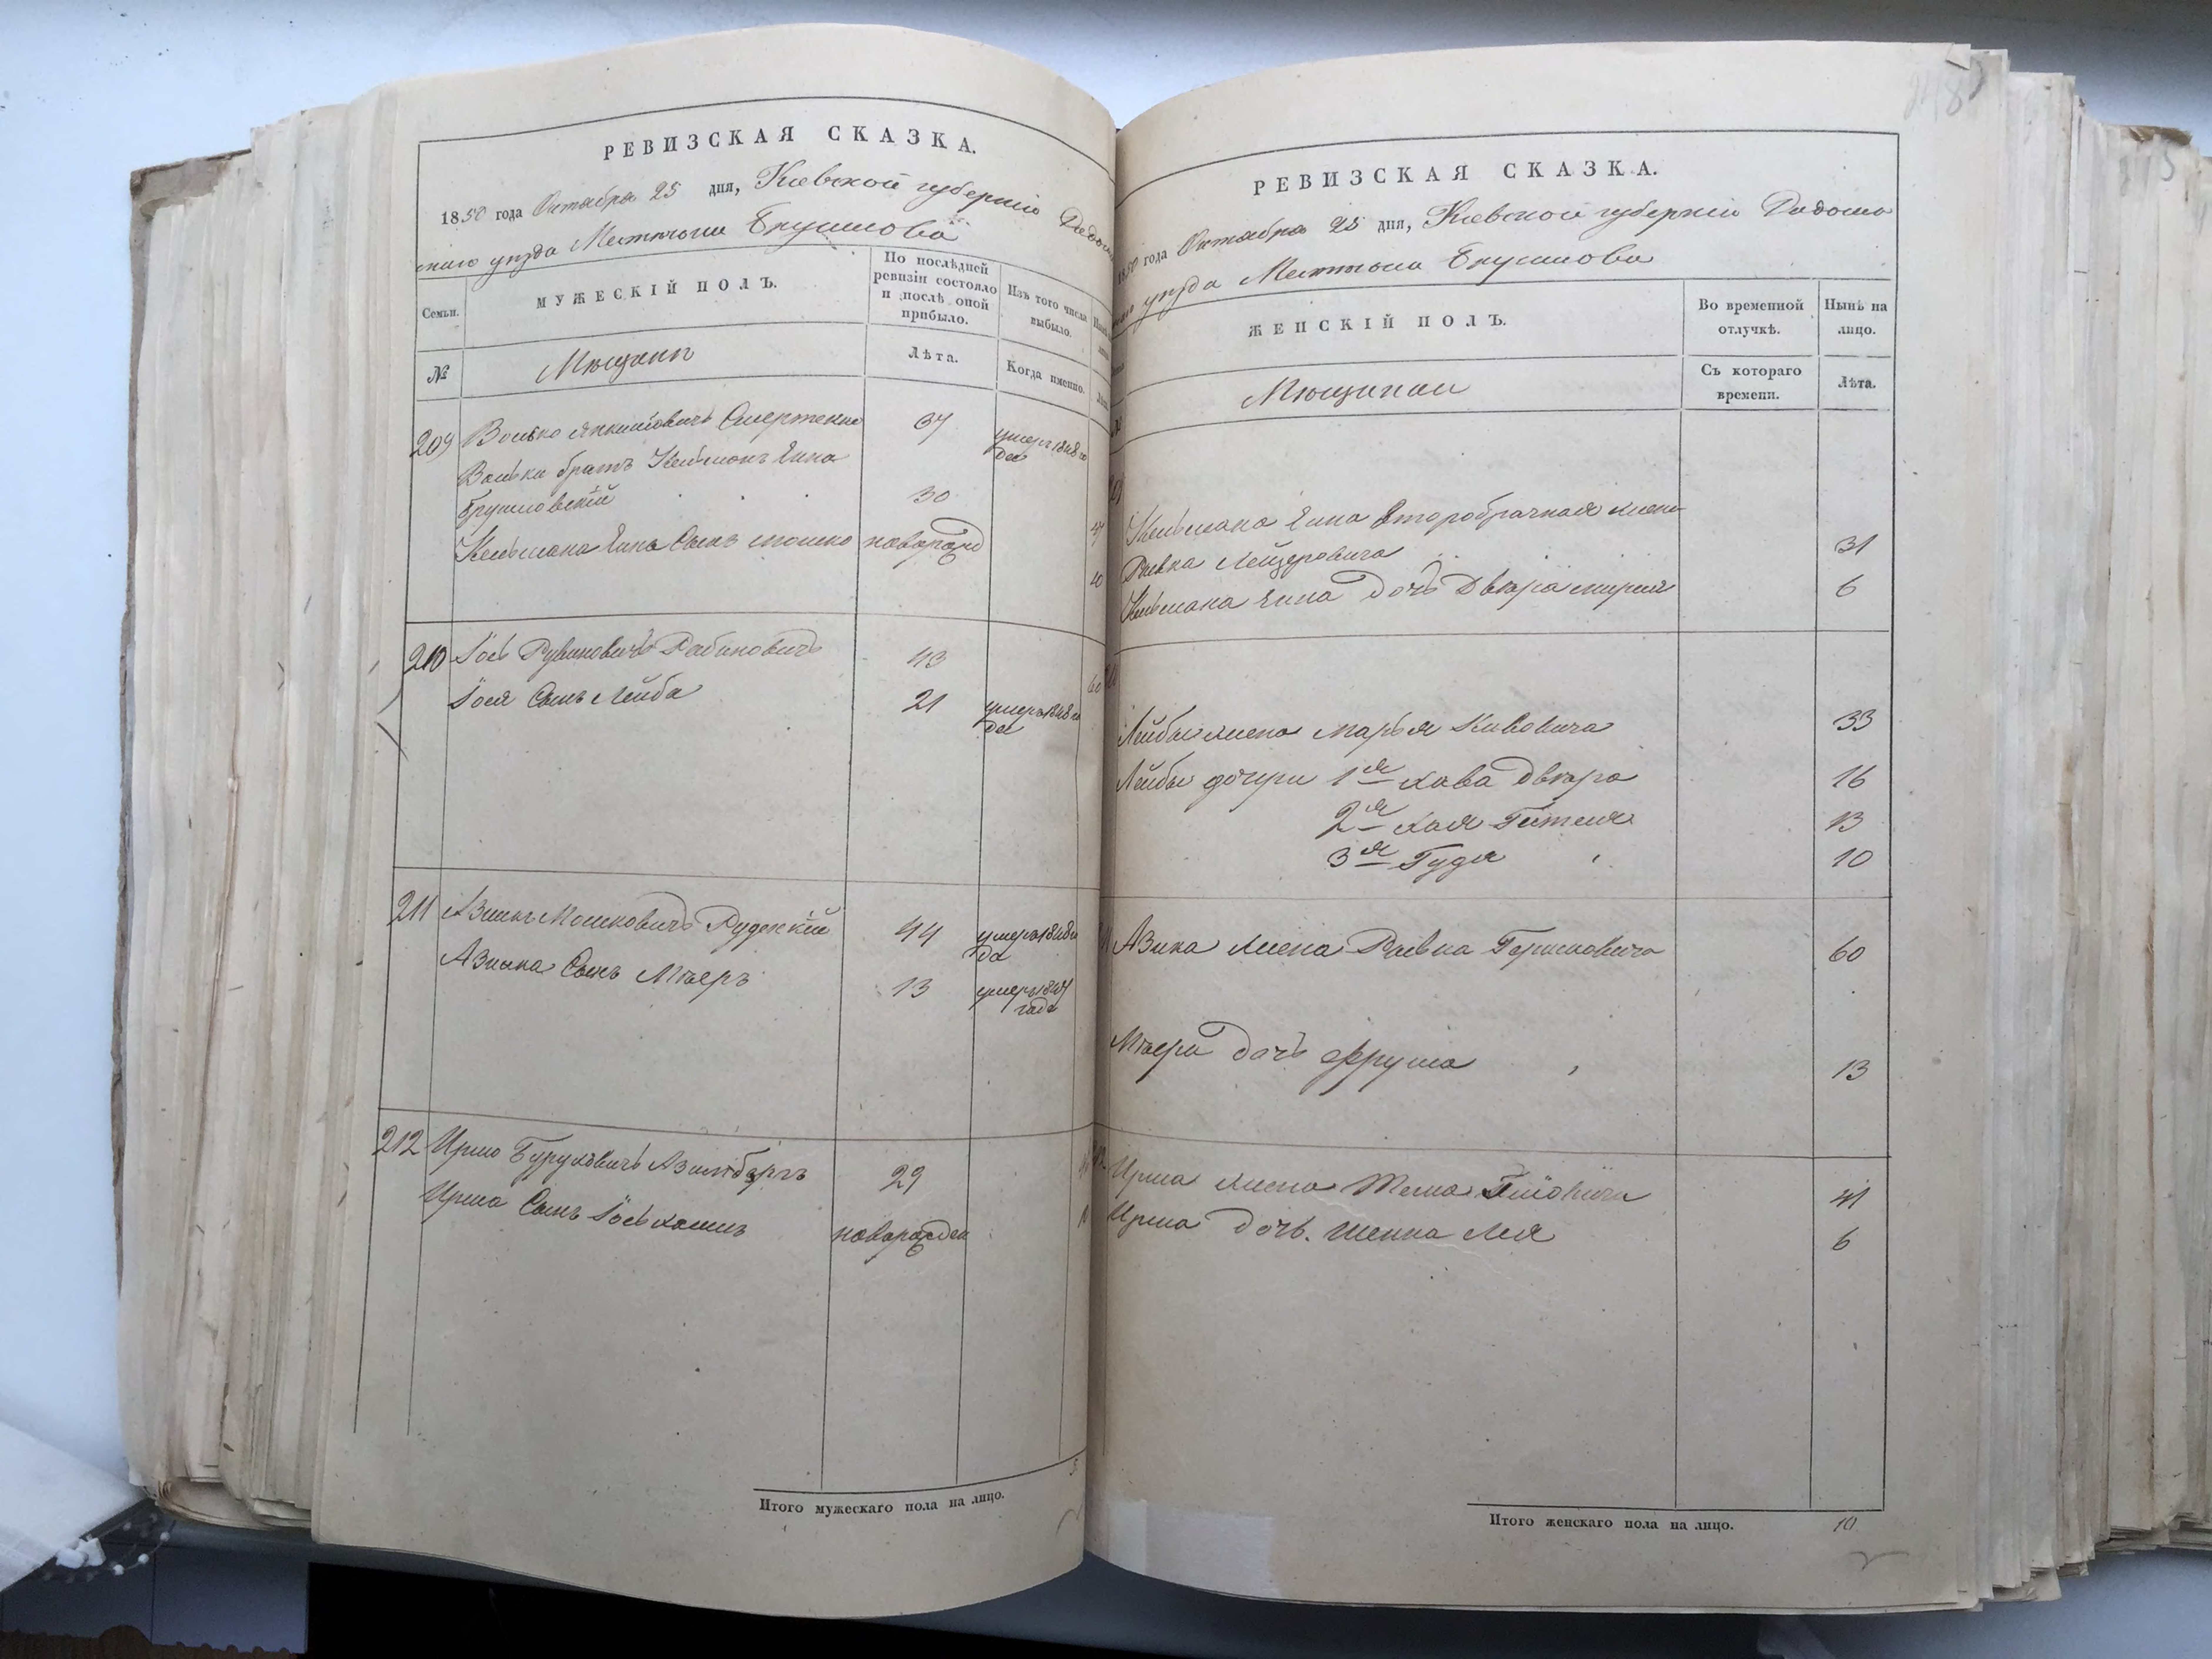 РЕВИЗСКАЯ СКАЗКА.
1850 года Октября 25 дня, Кіевской губерніи Радомы
скаго уѣзда Мѣстечка Брусилова
Семьи.
МУЖЕСКІЙ ПОЛЪ.
По послѣдней
ревизіи состояло
и послѣ оной
прибыло.
Изъ того числа
выбыло.
№
Мѣщане
Лѣта.
Когда именно.
209 Волько Смертенко 37 умеръ 1848 го
да
Волька братъ Кельманъ Еина
Брусиловскій 30 47
Кельмана Еина Сынъ Мошко новорожд 10
210 Іось Рувиновичъ Рабиновичъ 43 60
Іося Сынъ Лейба 21 умеръ 1848 го
да
211 Азикъ Мошковичъ Рудскій 44 умеръ 1848 го
да
Азика Сынъ Меръ 13 умеръ
года
212 Иршо Бурухович 29
Ирша Сынъ Іось новорожден
Итого мужескаго пола на лицо. 5
РЕВИЗСКАЯ СКАЗКА.
1850 года Октября 25 дня, Кіевской губерніи Радомы
уѣзда Мѣстечка Брусилова
ЖЕНСКІЙ ПОЛЪ.
Во временной
отлучкѣ.
Нынѣ на
лицо.
Мѣщанки
Съ котораго
времени.
Лѣта.
Кельмана Еина второбрачная жена
Ривка Лейзеровича 31
Кельмана Еина дочь Двейра 6
Лейбы жена Марья Кивовича 33
Лейбы дочери 1я Хава Двейра 16
2я Хая Гитля 13
3я Гудя 10
Азика жена Ривка Гершковича 60
Меера дочь Фрума 13
Ирша жена 41
Ирша дочь. Шейна Лея 6
Итого женскаго пола на лицо. 10